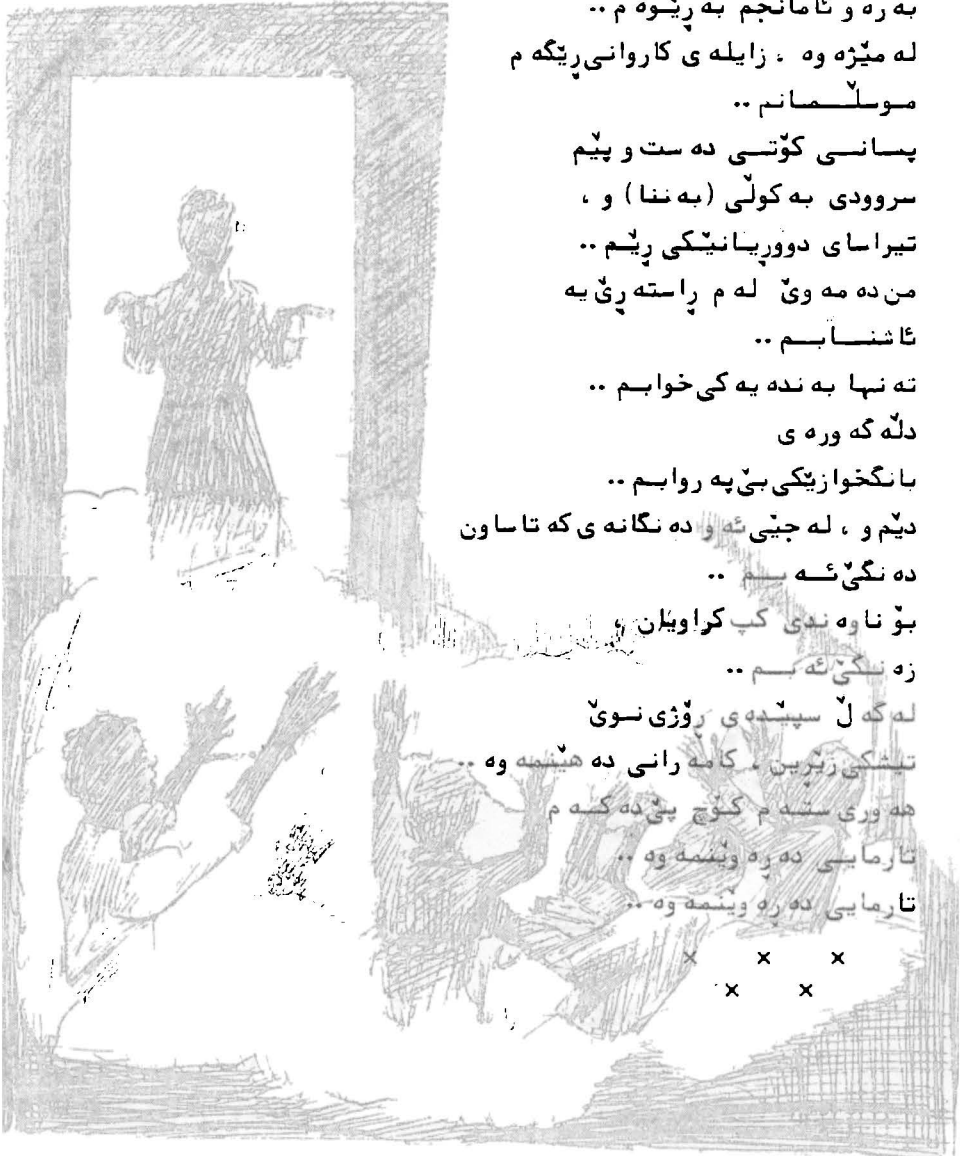 بەرەو ئامانجم بەڕێوەم ..
لە مێژەوە ، زایلەی کاروانی ڕێگەم
موسڵمانم ..
پسانی کۆتی دەست و پێم
سروودی بەکوڵی (بەننا) و ،
تیراسای دووڕیانێکی ڕێم ..
من دەمەوێ لەم ڕاستەڕێیە
ئاشنابم ..
تەنها بەندەیەکی خوابم ..
دڵە گەورەی
بانگخوازێکی بێ پەروابم ..
دێم و ، لە جێی ئەو دەنگانەی کە تاساون
دەنگێ ئەبم ..
بۆ ناوەندی کپ کراویان ،
زەنگێ ئەبم ..
لەگەڵ سپێدەی ڕۆژی نوێ
تیشکی زێڕین ، کامەرانی دەهێنمەوە ..
هەوری ستەم کۆچ پێ دەکەم
تارمایی دەڕەوێنمەوە ..
تارمایی دەڕەوێنمەوە ..
× × ×
× ×